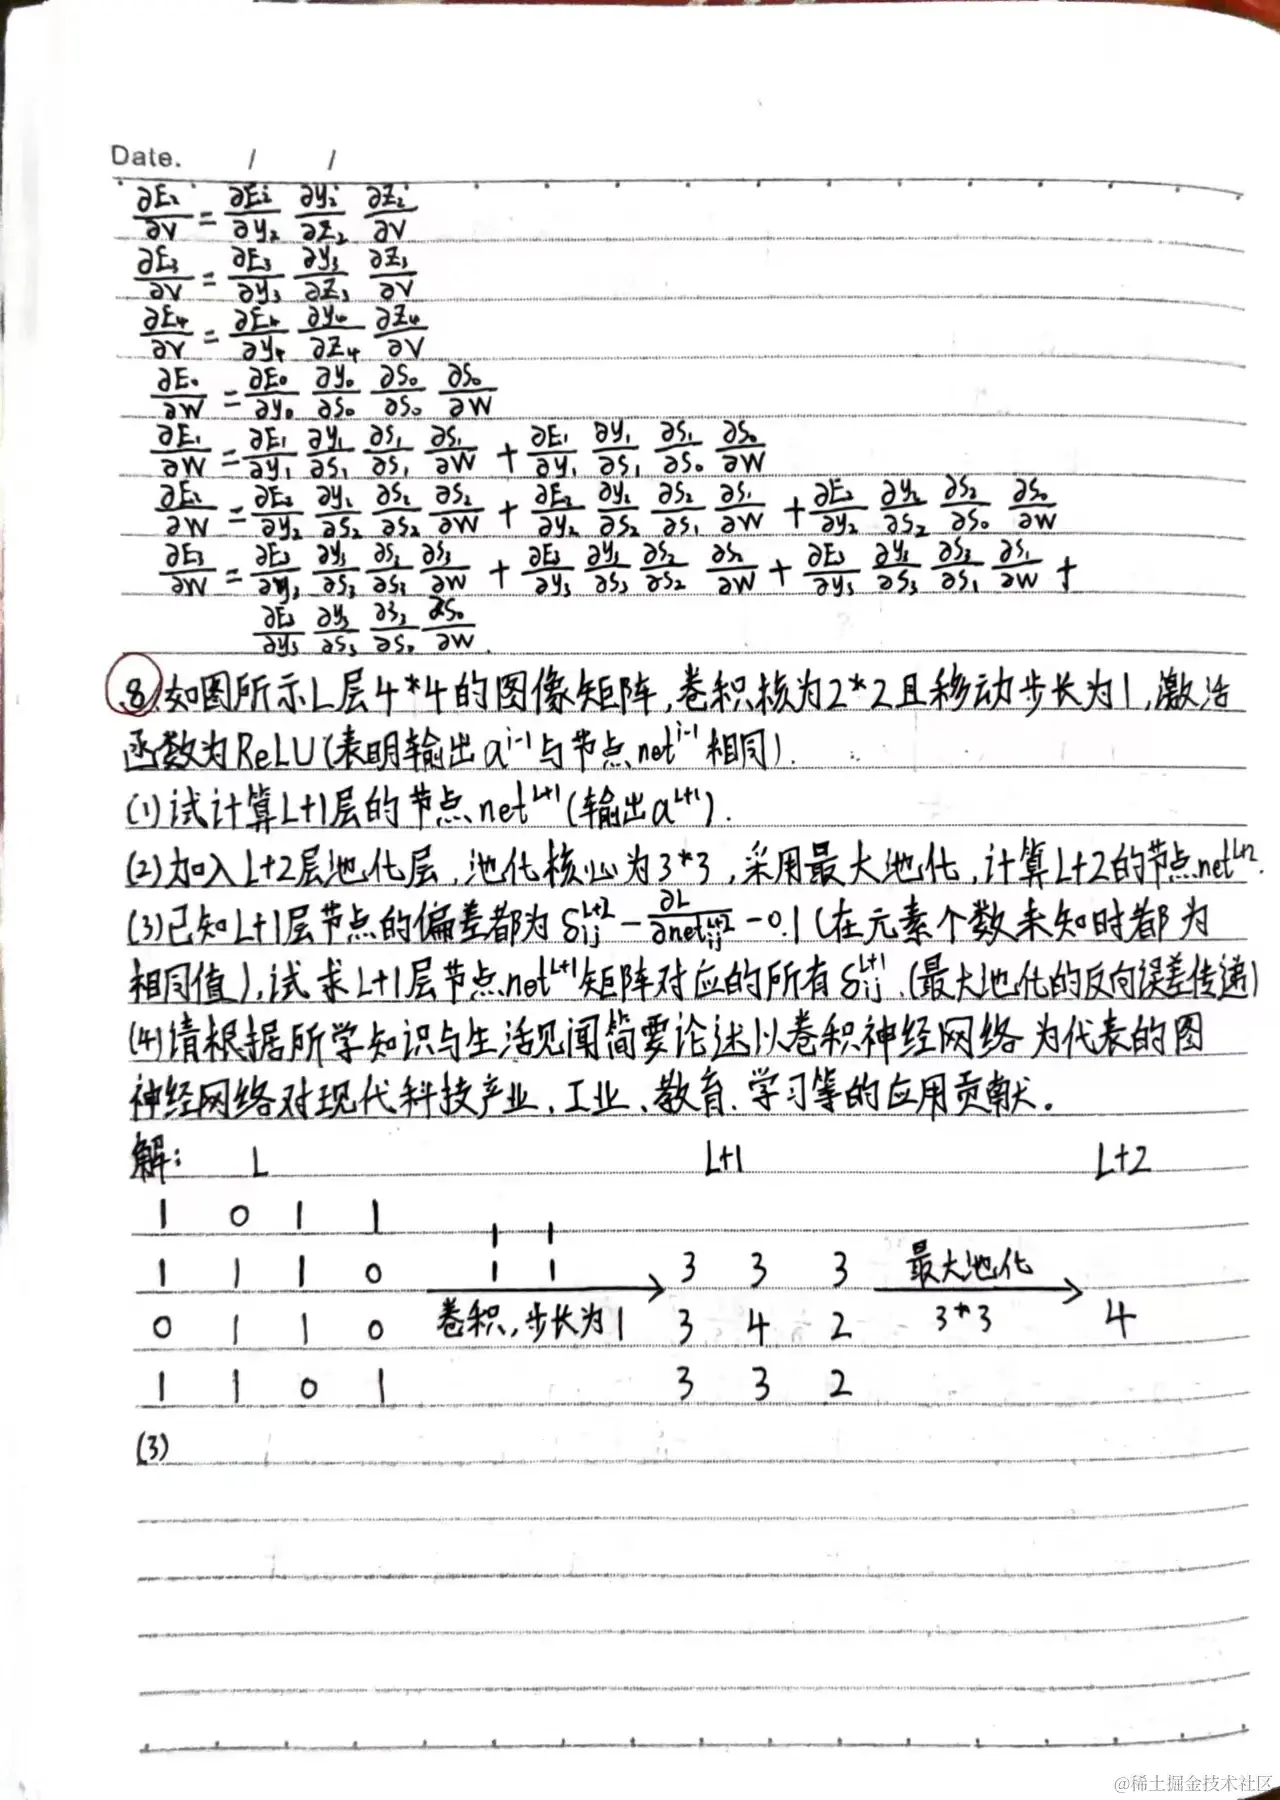 Date. / /
∂E₂/∂V = ∂E₂/∂y₂ ∂y₂/∂Z₂ ∂Z₂/∂V
∂E₃/∂V = ∂E₃/∂y₃ ∂y₃/∂Z₃ ∂Z₃/∂V
∂E₄/∂V = ∂E₄/∂y₄ ∂y₄/∂Z₄ ∂Z₄/∂V
∂E₀/∂W = ∂E₀/∂y₀ ∂y₀/∂S₀ ∂S₀/∂S₀ ∂S₀/∂W
∂E₁/∂W = ∂E₁/∂y₁ ∂y₁/∂S₁ ∂S₁/∂S₁ ∂S₁/∂W + ∂E₁/∂y₁ ∂y₁/∂S₁ ∂S₁/∂S₀ ∂S₀/∂W
∂E₂/∂W = ∂E₂/∂y₂ ∂y₂/∂S₂ ∂S₂/∂S₂ ∂S₂/∂W + ∂E₂/∂y₂ ∂y₂/∂S₂ ∂S₂/∂S₁ ∂S₁/∂W + ∂E₂/∂y₂ ∂y₂/∂S₂ ∂S₂/∂S₀ ∂S₀/∂W
∂E₃/∂W = ∂E₃/∂y₃ ∂y₃/∂S₃ ∂S₃/∂S₃ ∂S₃/∂W + ∂E₃/∂y₃ ∂y₃/∂S₃ ∂S₃/∂S₂ ∂S₂/∂W + ∂E₃/∂y₃ ∂y₃/∂S₃ ∂S₃/∂S₁ ∂S₁/∂W +
∂E₃/∂y₃ ∂y₃/∂S₃ ∂S₃/∂S₀ ∂S₀/∂W.
8.如图所示L层4*4的图像矩阵,卷积核为2*2且移动步长为1,激活
函数为ReLU(表明输出aⁱ⁻¹与节点netⁱ⁻¹相同).
(1)试计算L+1层的节点net^{L+1}(输出a^{L+1}).
(2)加入L+2层池化层,池化核心为3*3,采用最大池化,计算L+2的节点net^{L+2}.
(3)已知L+1层节点的偏差都为δ_{ij}^{L+2} – ∂L/∂net_{ij}^{L+2} – 0.1(在元素个数未知时都为
相同值),试求L+1层节点net^{L+1}矩阵对应的所有δ_{ij}^{L+1}.(最大池化的反向误差传递)
(4)请根据所学知识与生活见闻简要论述以卷积神经网络为代表的图
神经网络对现代科技产业、工业、教育、学习等的应用贡献。
解: L L+1 L+2
1 0 1 1 1 1
1 1 1 0 1 1 3 3 3 最大池化
0 1 1 0 卷积,步长为1 3 4 2 3*3 4
1 1 0 1 3 3 2
(3)
@稀土掘金技术社区